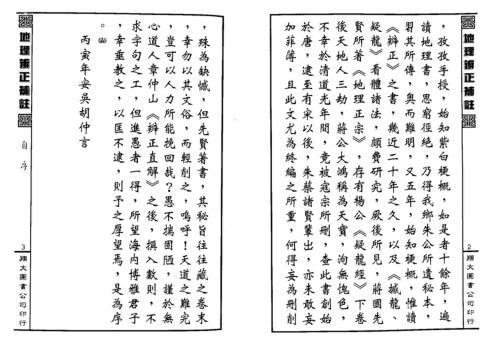 地理辨正補註
，孜孜手授，始知紫白梗概，如是者十餘年，遍
讀地理書，思窮徑絕，乃得我鄉朱公所遺秘本，
習其所傳，奧而難明，又五年，始知梗概，惟讀
《辨正》之書，幾近二十年之久，以及《撼龍、
疑龍》看體諸法，頗費研究，厥後所見，蔣國先
賢所著《地理正宗》，存有楊公《疑龍經》下卷
後天地人三劫，蔣公大鴻稱為天寶，洵無愧色，
不幸於清道光年間，竟被寇宗所刪，查此書創始
於唐，逮至有宋以後，朱蔡諸賢輩出，亦未敢妄
加菲薄，且此文尤為終編之所重，何得妄為刪削
2
翔大圖書公司印行
，殊為缺憾，但先賢著書，其秘旨往往藏之卷末
，幸勿以其文俗，而輕削之，嗚呼！天道之難完
，豈可以人力所能挽回哉？愚不揣固陋，謹於無
心道人章仲山《辨正直解》之後，撰入數則，不
求字句之工，但進愚者一得，所望海內博雅君子
，幸垂教之，以匡不逮，則予之厚望焉，是為序
。
丙寅年安吳胡仲言
地理辨正補註
自序
3
翔大圖書公司印行